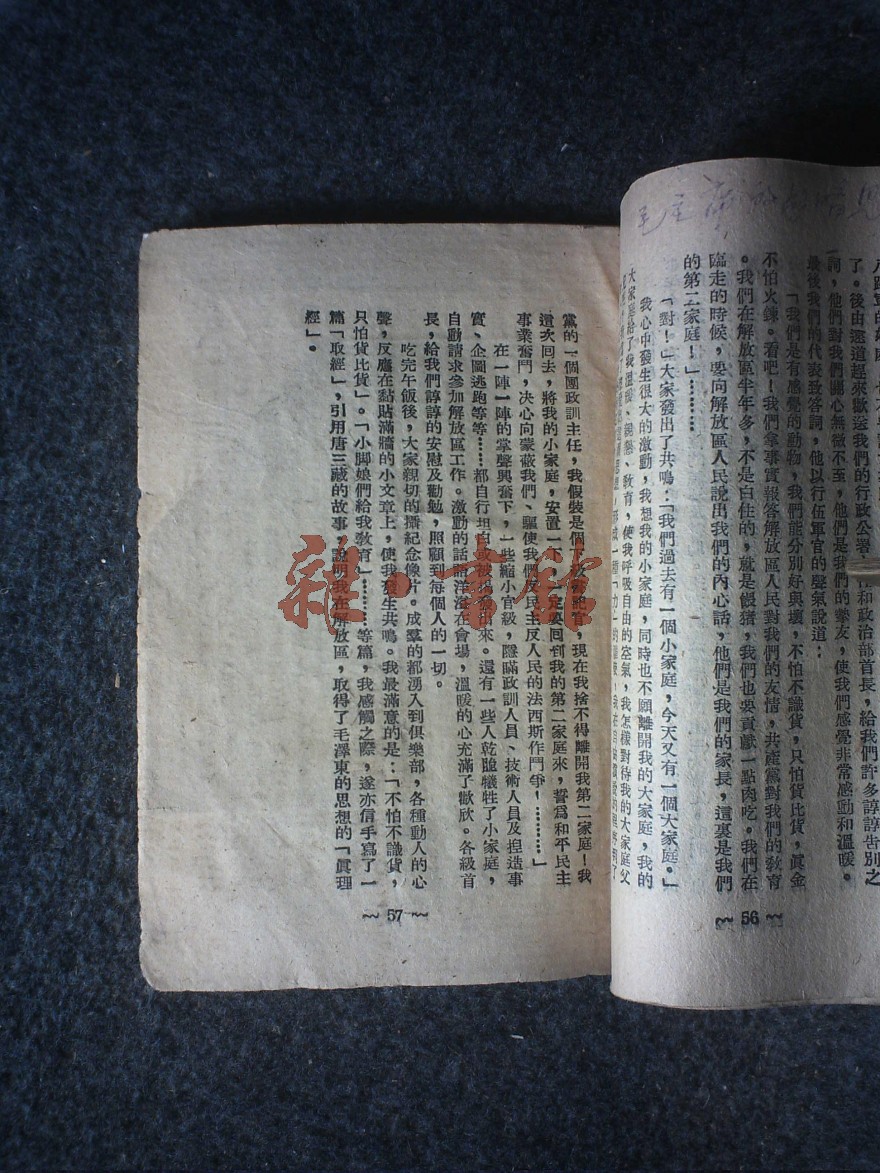 了。後由遠道趕來歡送我們的行政公署
任和政治部首長，給我們許多諄諄告別之
詞，他們對我們關心無微不至，他們是我們的摯友，使我們感覺非常感動和溫暖。
最後我們的代表致答詞，他以行伍軍官的聲氣說道：
「我們是有感覺的動物，我們能分別好與壞，不怕不識貨，只怕貨比貨，眞金
不怕火鍊。看吧！我們拿事實報答解放區人民對我們的友情，共產黨對我們的敎育
。我們在解放區半年多，不是白住的，就是餵猪，我們也要貢獻一點肉吃。我們在
臨走的時候，要向解放區人民說出我們的內心話，他們是我們的家長，這裏是我們
的第二家庭！」…………
「對！」大家發出了共鳴：「我們過去有一個小家庭，今天又有一個大家庭。」
我心中發生很大的激動，我想我的小家庭，同時也不願離開我的大家庭，我的
大家庭給了我溫暖、親熱、敎育，使我呼吸自由的空氣，我怎樣對待我的大家庭父
~ 56 ~
黨的一個團政訓主任，我假裝是個下
記官，現在我捨不得離開我第二家庭！我
這次回去，將我的小家庭，安置一下，一定要回到我的第二家庭來，誓爲和平民主
事業奮鬥，决心向蒙蔽我們、驅使我們反民主反人民的法西斯作鬥爭！…………」
在一陣一陣的掌聲興奮下，一些縮小官級，隱瞞政訓人員、技術人員及揑造事
實、企圖逃跑等等……都自行坦白或被揭發出來。還有一些人乾脆犧牲了小家庭，
自動請求參加解放區工作。激動的話語洋溢在會場，溫暖的心充滿了歡欣。各級首
長，給我們諄諄的安慰及勸勉，照顧到每個人的一切。
吃完午飯後，大家親切的攝紀念像片。成羣的都湧入到俱樂部，各種動人的心
聲，反應在黏貼滿牆的小文章上，使我發生共鳴。我最滿意的是：「不怕不識貨，
只怕貨比貨」。「小脚娘們給我敎育」…………等篇，我感觸之際，遂亦信手寫了一
篇「取經」，引用唐三藏的故事，說明我在解放區，取得了毛澤東的思想的「眞理
經」。
~ 57 ~
雜·書館